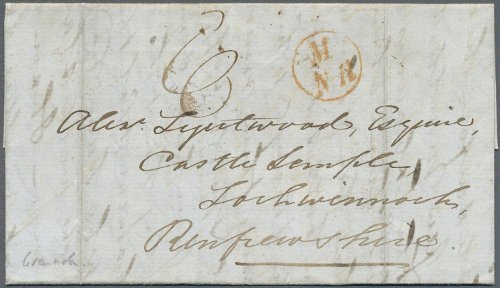 6
M
NR
Alexr. Lyntwood, Esquire,
Castle Semple,
Lochwinnoch,
Renfrewshire.
Grenada